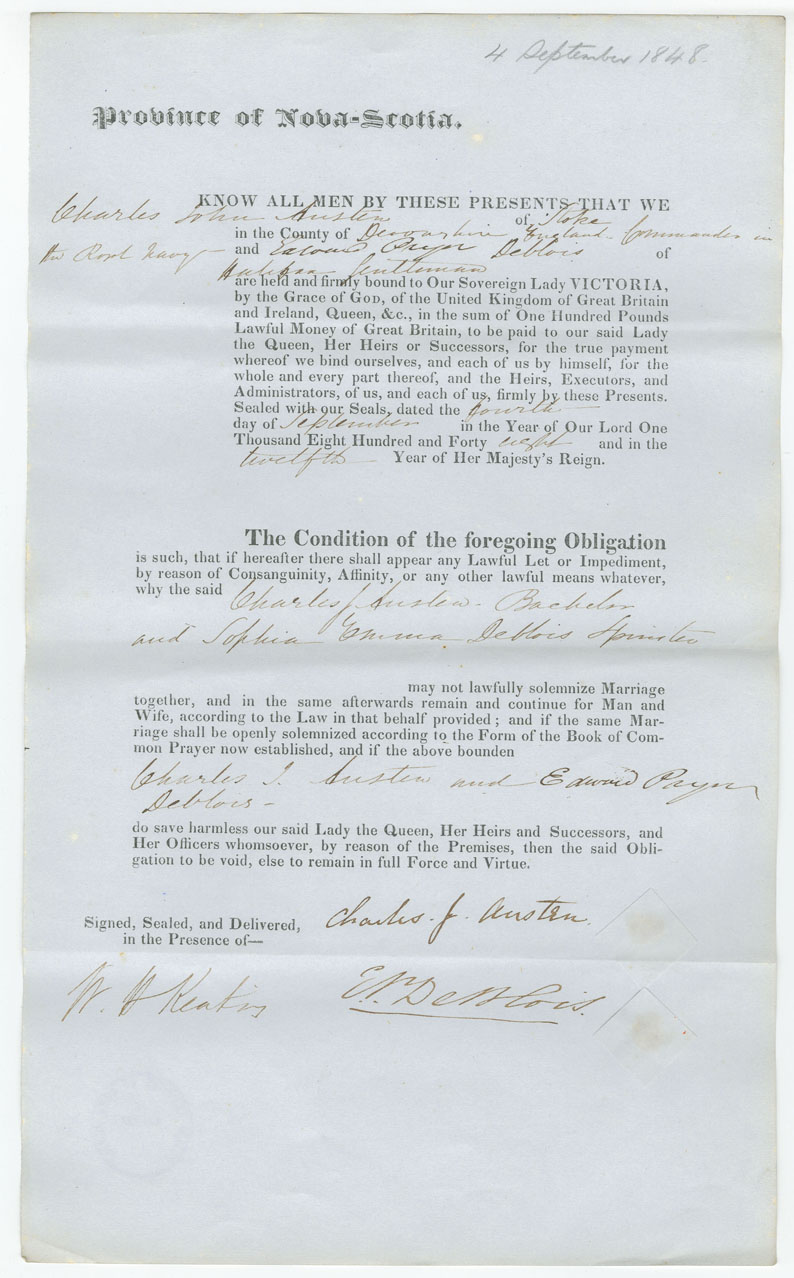 4 September 1848.
Province of Nova-Scotia.
KNOW ALL MEN BY THESE PRESENTS THAT WE
Charles John Austen of Stoke
in the County of Devonshire England Commander in
the Royl Navy and Edward Pryor Deblois of
Halifax Gentleman
are held and firmly bound to Our Sovereign Lady VICTORIA,
by the Grace of GOD, of the United Kingdom of Great Britain
and Ireland, Queen, &c., in the sum of One Hundred Pounds
Lawful Money of Great Britain, to be paid to our said Lady
the Queen, Her Heirs or Successors, for the true payment
whereof we bind ourselves, and each of us by himself, for the
whole and every part thereof, and the Heirs, Executors, and
Administrators, of us, and each of us, firmly by these Presents.
Sealed with our Seals, dated the fourth
day of September in the Year of Our Lord One
Thousand Eight Hundred and Forty eight and in the
twelfth Year of Her Majesty's Reign.
The Condition of the foregoing Obligation
is such, that if hereafter there shall appear any Lawful Let or Impediment,
by reason of Consanguinity, Affinity, or any other lawful means whatever,
why the said Charles J Austen - Bachelor
and Sophia Emma Deblois Spinster
may not lawfully solemnize Marriage
together, and in the same afterwards remain and continue for Man and
Wife, according to the Law in that behalf provided; and if the same Mar-
riage shall be openly solemnized according to the Form of the Book of Com-
mon Prayer now established, and if the above bounden
Charles J. Austen and Edward Pryor
Deblois -
do save harmless our said Lady the Queen, Her Heirs and Successors, and
Her Officers whomsoever, by reason of the Premises, then the said Obli-
gation to be void, else to remain in full Force and Virtue.
Signed, Sealed, and Delivered,
in the Presence of—
Charles. J. Austen.
W. H Keating
E.P. DeBlois.